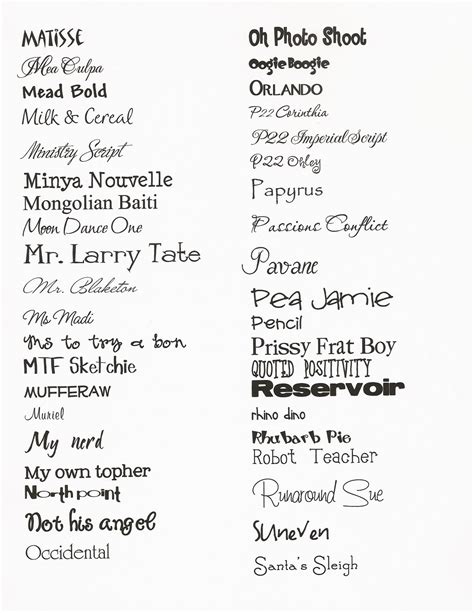 MATISSE
Mea Culpa
Mead Bold
Milk & Cereal
Ministry Script
Minya Nouvelle
Mongolian Baiti
Moon Dance One
Mr. Larry Tate
Mr. Blaketon
Ms Madi
Ms to try a bon
MTF Sketchie
MUFFERAW
Muriel
My nerd
My own topher
North point
Not his angel
Occidental
Oh Photo Shoot
Oogie Boogie
ORLANDO
P22 Corinthia
P22 Imperial Script
P22 Ohley
Papyrus
Passions Conflict
Pavane
Pea Jamie
Pencil
Prissy Frat Boy
QUOTED POSITIVITY
Reservoir
rhino dino
Rhubarb Pie
Robot Teacher
Runaround Sue
SUneven
Santa's Sleigh